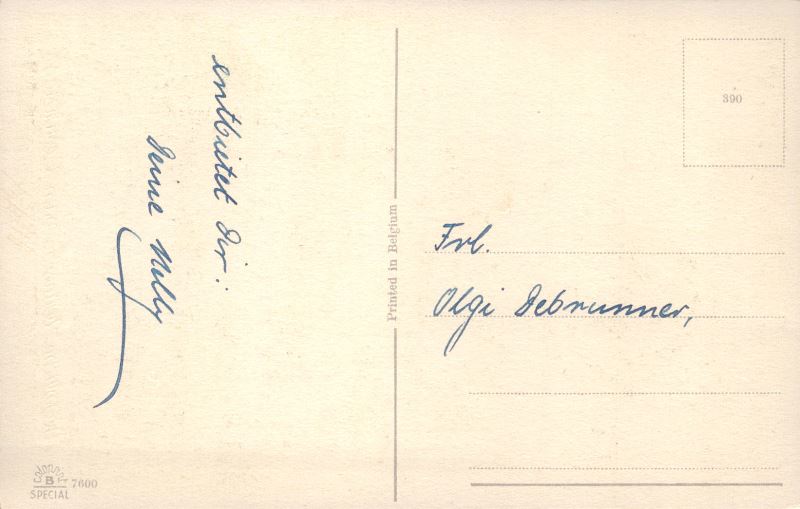 entbietet Dir:
Deine Nelly
Printed in Belgium
390
Frl.
Olgi Debrunner,
COLORPRINT
B
SPECIAL
7600